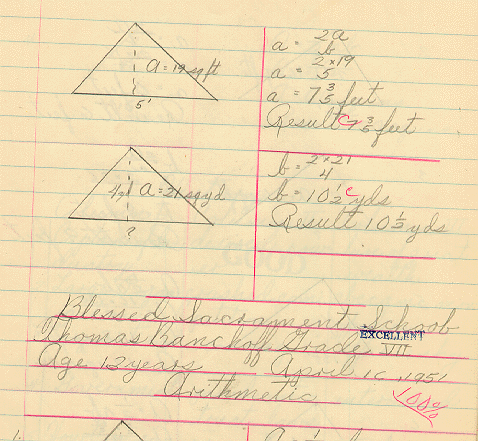 a = 2a
b
A = 19 sq ft
a = 2 x 19
5
5'
a = 7 3/5 feet
Result 7 3/5 feet
C
b = 2 x 21
4
A = 21 sq yd
b = 10 1/2 yds
C
?
Result 10 1/2 yds
Blessed Sacrament School
Thomas Banchoff Grade VII
EXCELLENT
Age 13 years April 16, 1951
Arithmetic
100%